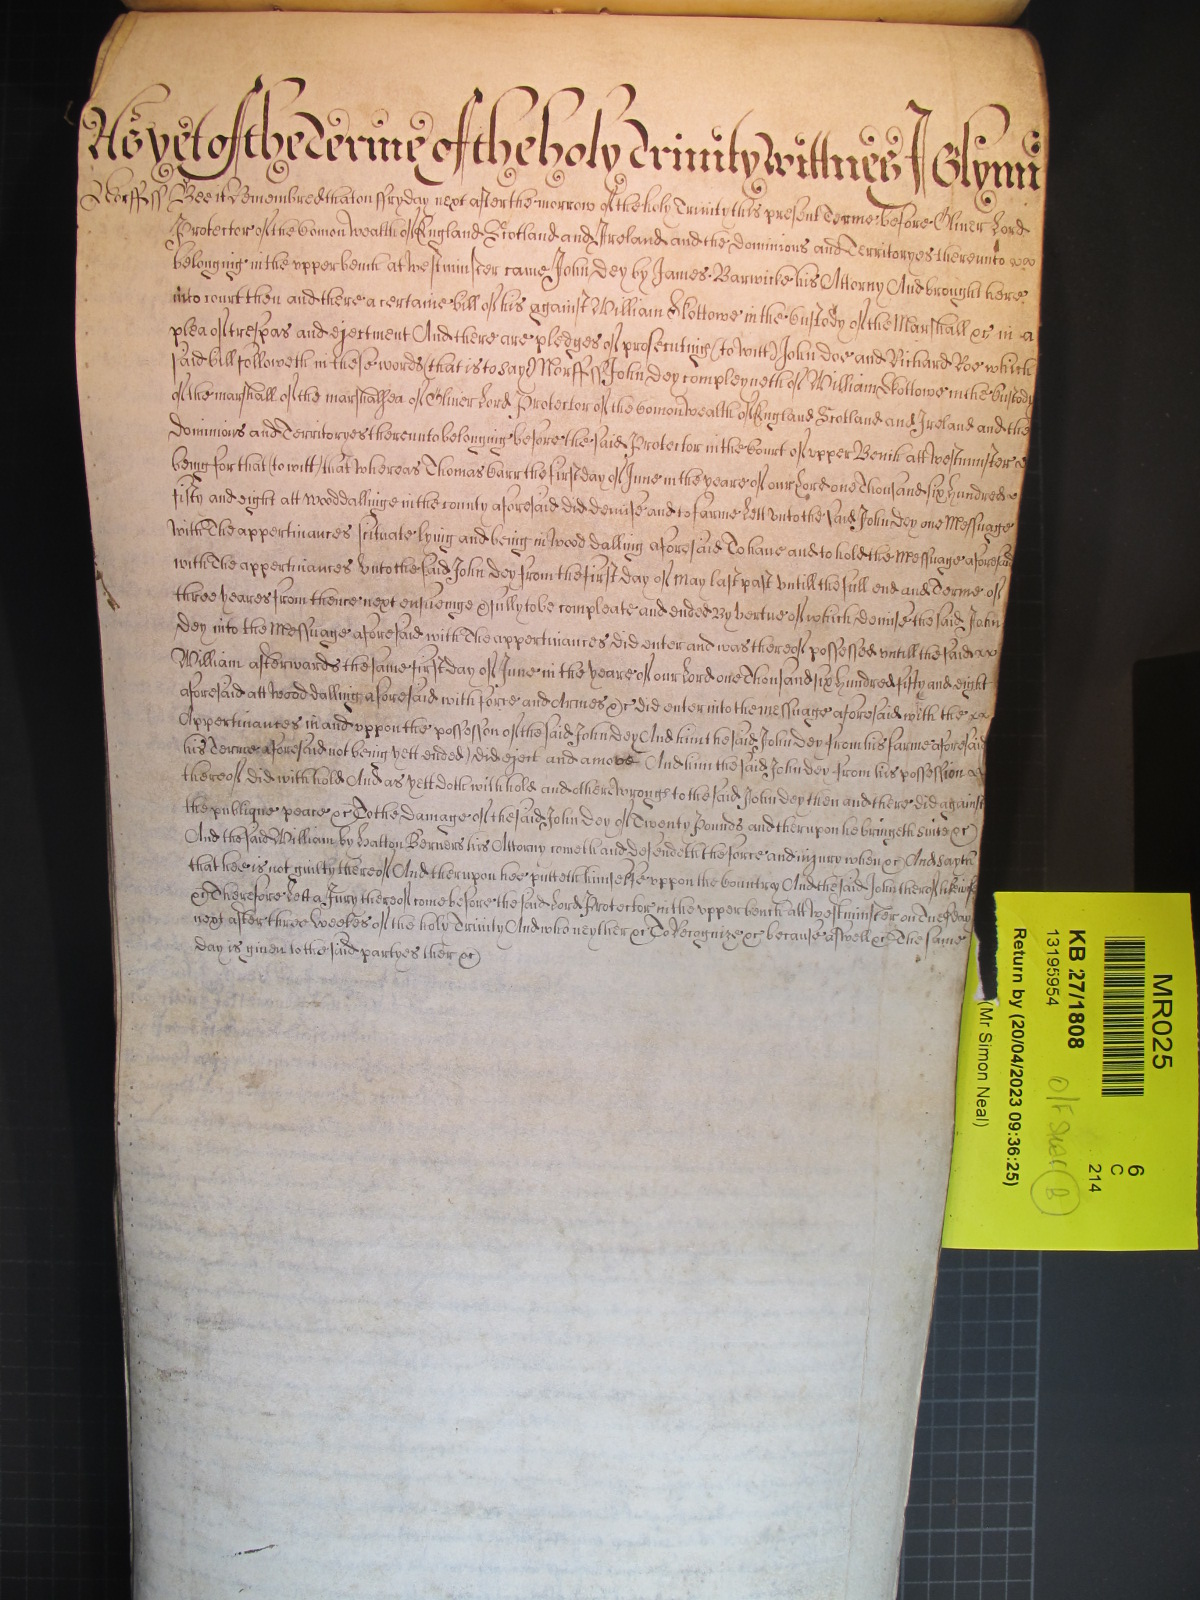 As yet of the Terme of the holy Trinity Wittnes J Glynn
Norff ss Bee it Remembred that on ffryday next after the morrow of the holy Trinity this present Terme before Oliver Lord
Protector of the Comon wealth of England Scotland and Ireland and the Dominions and Territoryes thereunto
belonging in the upper bench at westminster came John Dey by James Barwicke his Attorny And brought here
into court then and there a certaine bill of his against William Skottowe in the Custody of the Marshall &c in a
plea of trespas and ejectment And there are pledges of prosecutinge (to witt) John Doe and Richard Roe which
said bill followeth in these words (that is to say) Norff ss John Dey compleyneth of William Skottowe in the Custody
of the marshall of the marshalsea of Oliver Lord Protector of the Comon wealth of England Scotland and Ireland and the
Dominions and Territoryes thereunto belonging before the said Protector in the Court of upper Bench att Westminster
being for that (to witt) that whereas Thomas Carr the first day of June in the yeare of our Lord one Thousand six hundred
fifty and eight att wooddallinge in the county aforesaid did demise and to farme Lett unto the said John Dey one Messuage
with The appertinances scituate lying and being in Wood dalling aforesaid To have and to hold the Messuage aforesaid
with The appertinances unto the said John Dey from the first day of May last past untill the full end and Terme of
three yeares from thence next ensueinge & fully to be compleate and ended By vertue of which demise the said John
Dey into the Messuage aforesaid with The appertinances did enter and was thereof possessed untill the said
William afterwards the same first day of June in the yeare of our Lord one Thousand six hundred fifty and eight
aforesaid att Wood dalling aforesaid with force and Armes &c did enter into the messuage aforesaid with the
Appertinances in and uppon the possession of the said John Dey And him the said John Dey from his farme aforesaid
his Terme aforesaid not being yett ended) did eject and amove And him the said John Dey from his possession
thereof did withhold And as yett doth withhold and other wrongs to the said John Dey then and there did against
the publique peace &c To the damage of the said John Dey of Twenty Pounds and therupon he bringeth suite &c)
And the said William by Hatton Berners his Attorny cometh and defendeth the force and injury when &c And sayth
that hee is not guilty thereof And therupon hee putteth himselfe uppon the Country And the said John therof likewise
&c Therefore Lett a Jury thereof come before the said Lord Protector in the upper bench att westminster on Tuesday
next after three weekes of the holy Trinity And who neyther &c To Recognize &c because aswell &c The same
day is given to the said partyes ther &c)
MR025
6
C
214
KB 27/1808
13195954
Return by (20/04/2023 09:36:25)
(Mr Simon Neal)
B